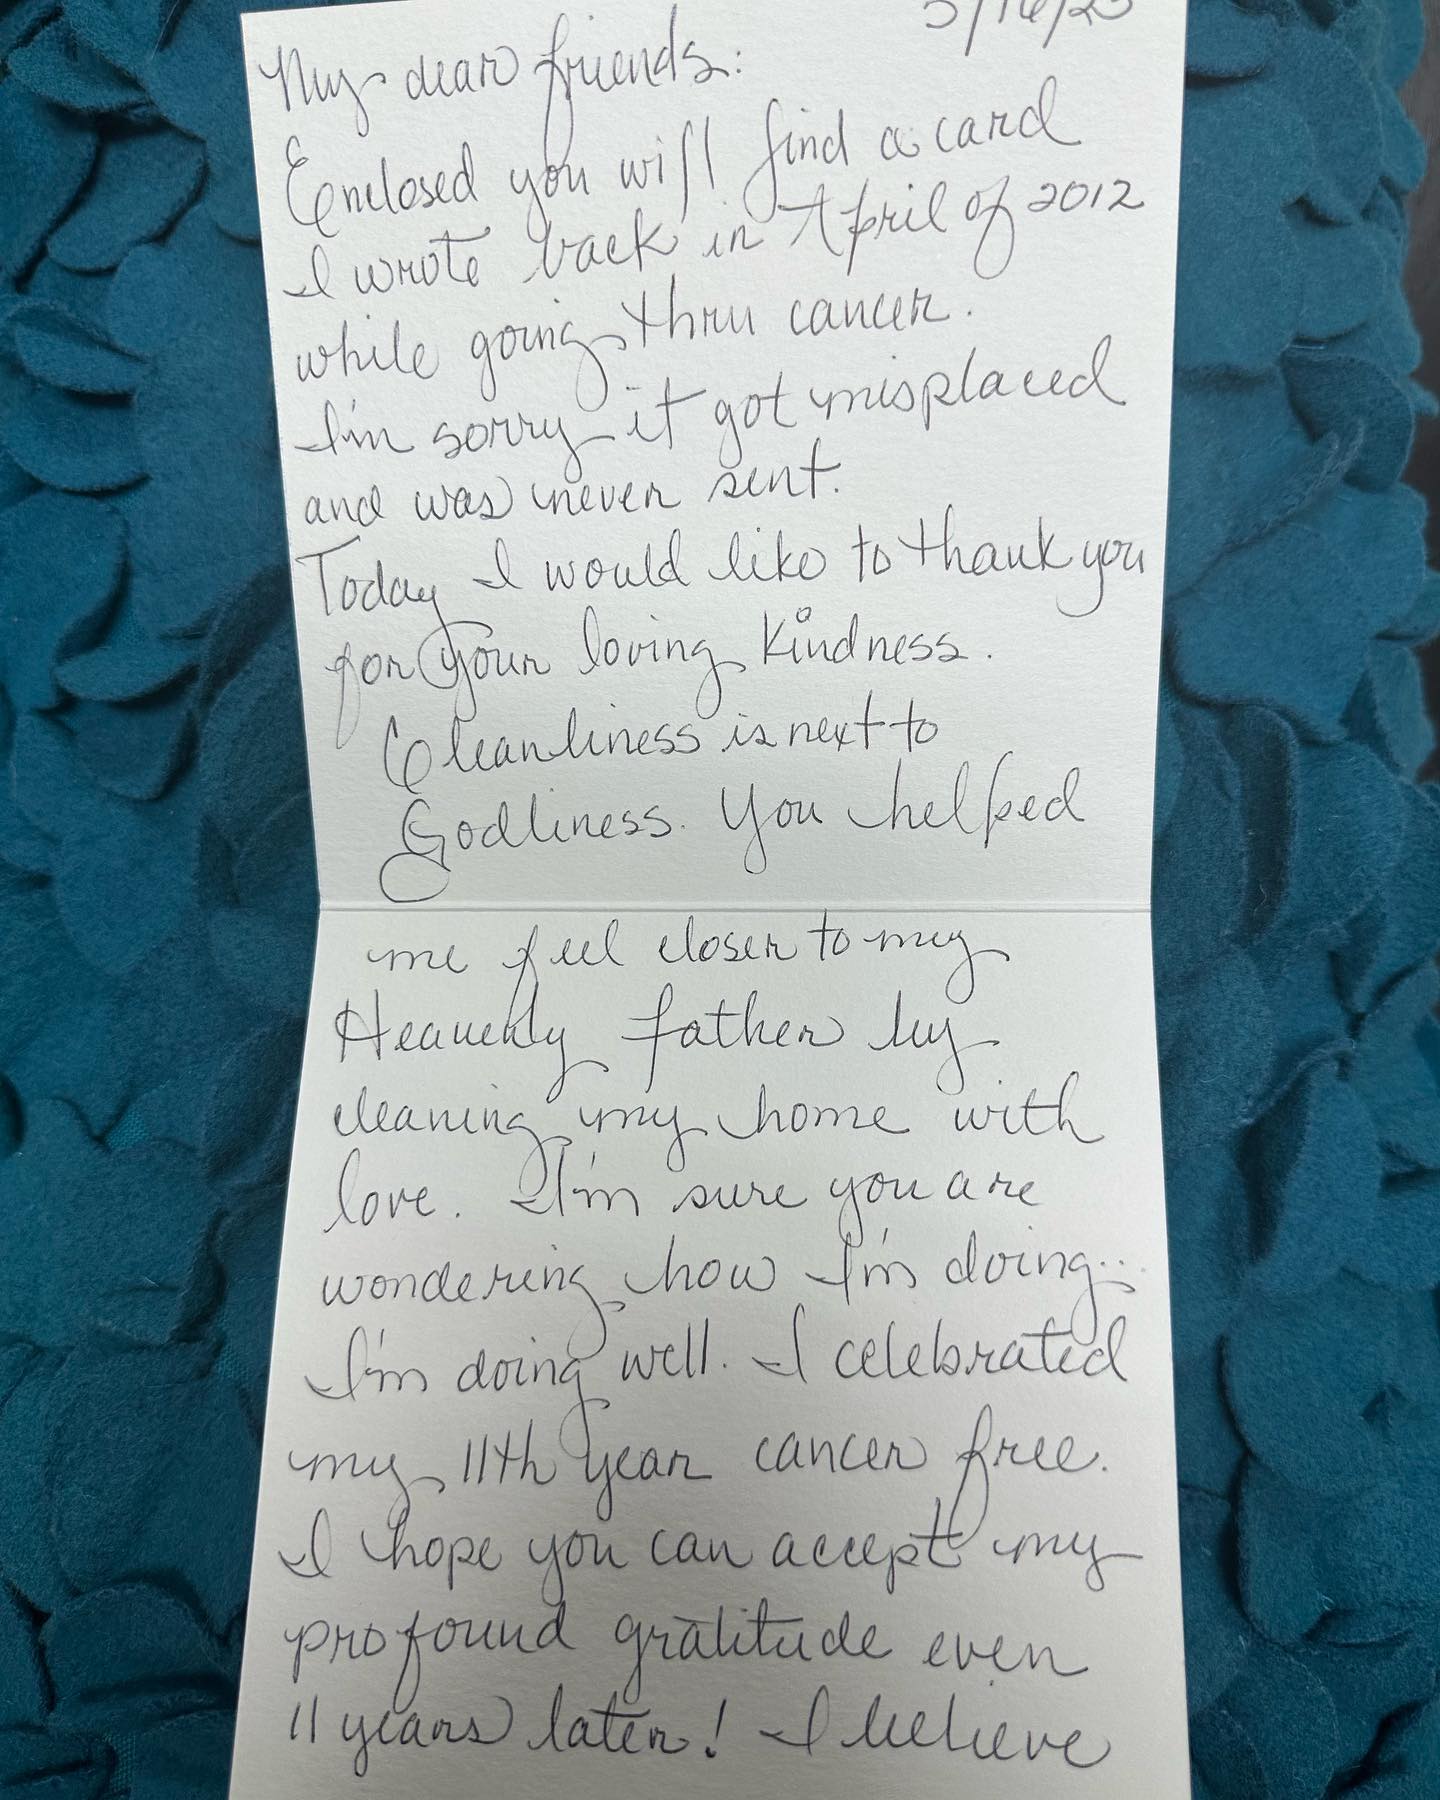 5/16/23
My dear friends:
Enclosed you will find a card
I wrote back in April of 2012
while going thru cancer.
I'm sorry it got misplaced
and was never sent.
Today I would like to thank you
for your loving kindness.
Cleanliness is next to
Godliness. You helped
me feel closer to my
Heavenly Father by
cleaning my home with
love. I'm sure you are
wondering how I'm doing...
I'm doing well. I celebrated
my 11th year cancer free.
I hope you can accept my
profound gratitude even
11 years later! I believe